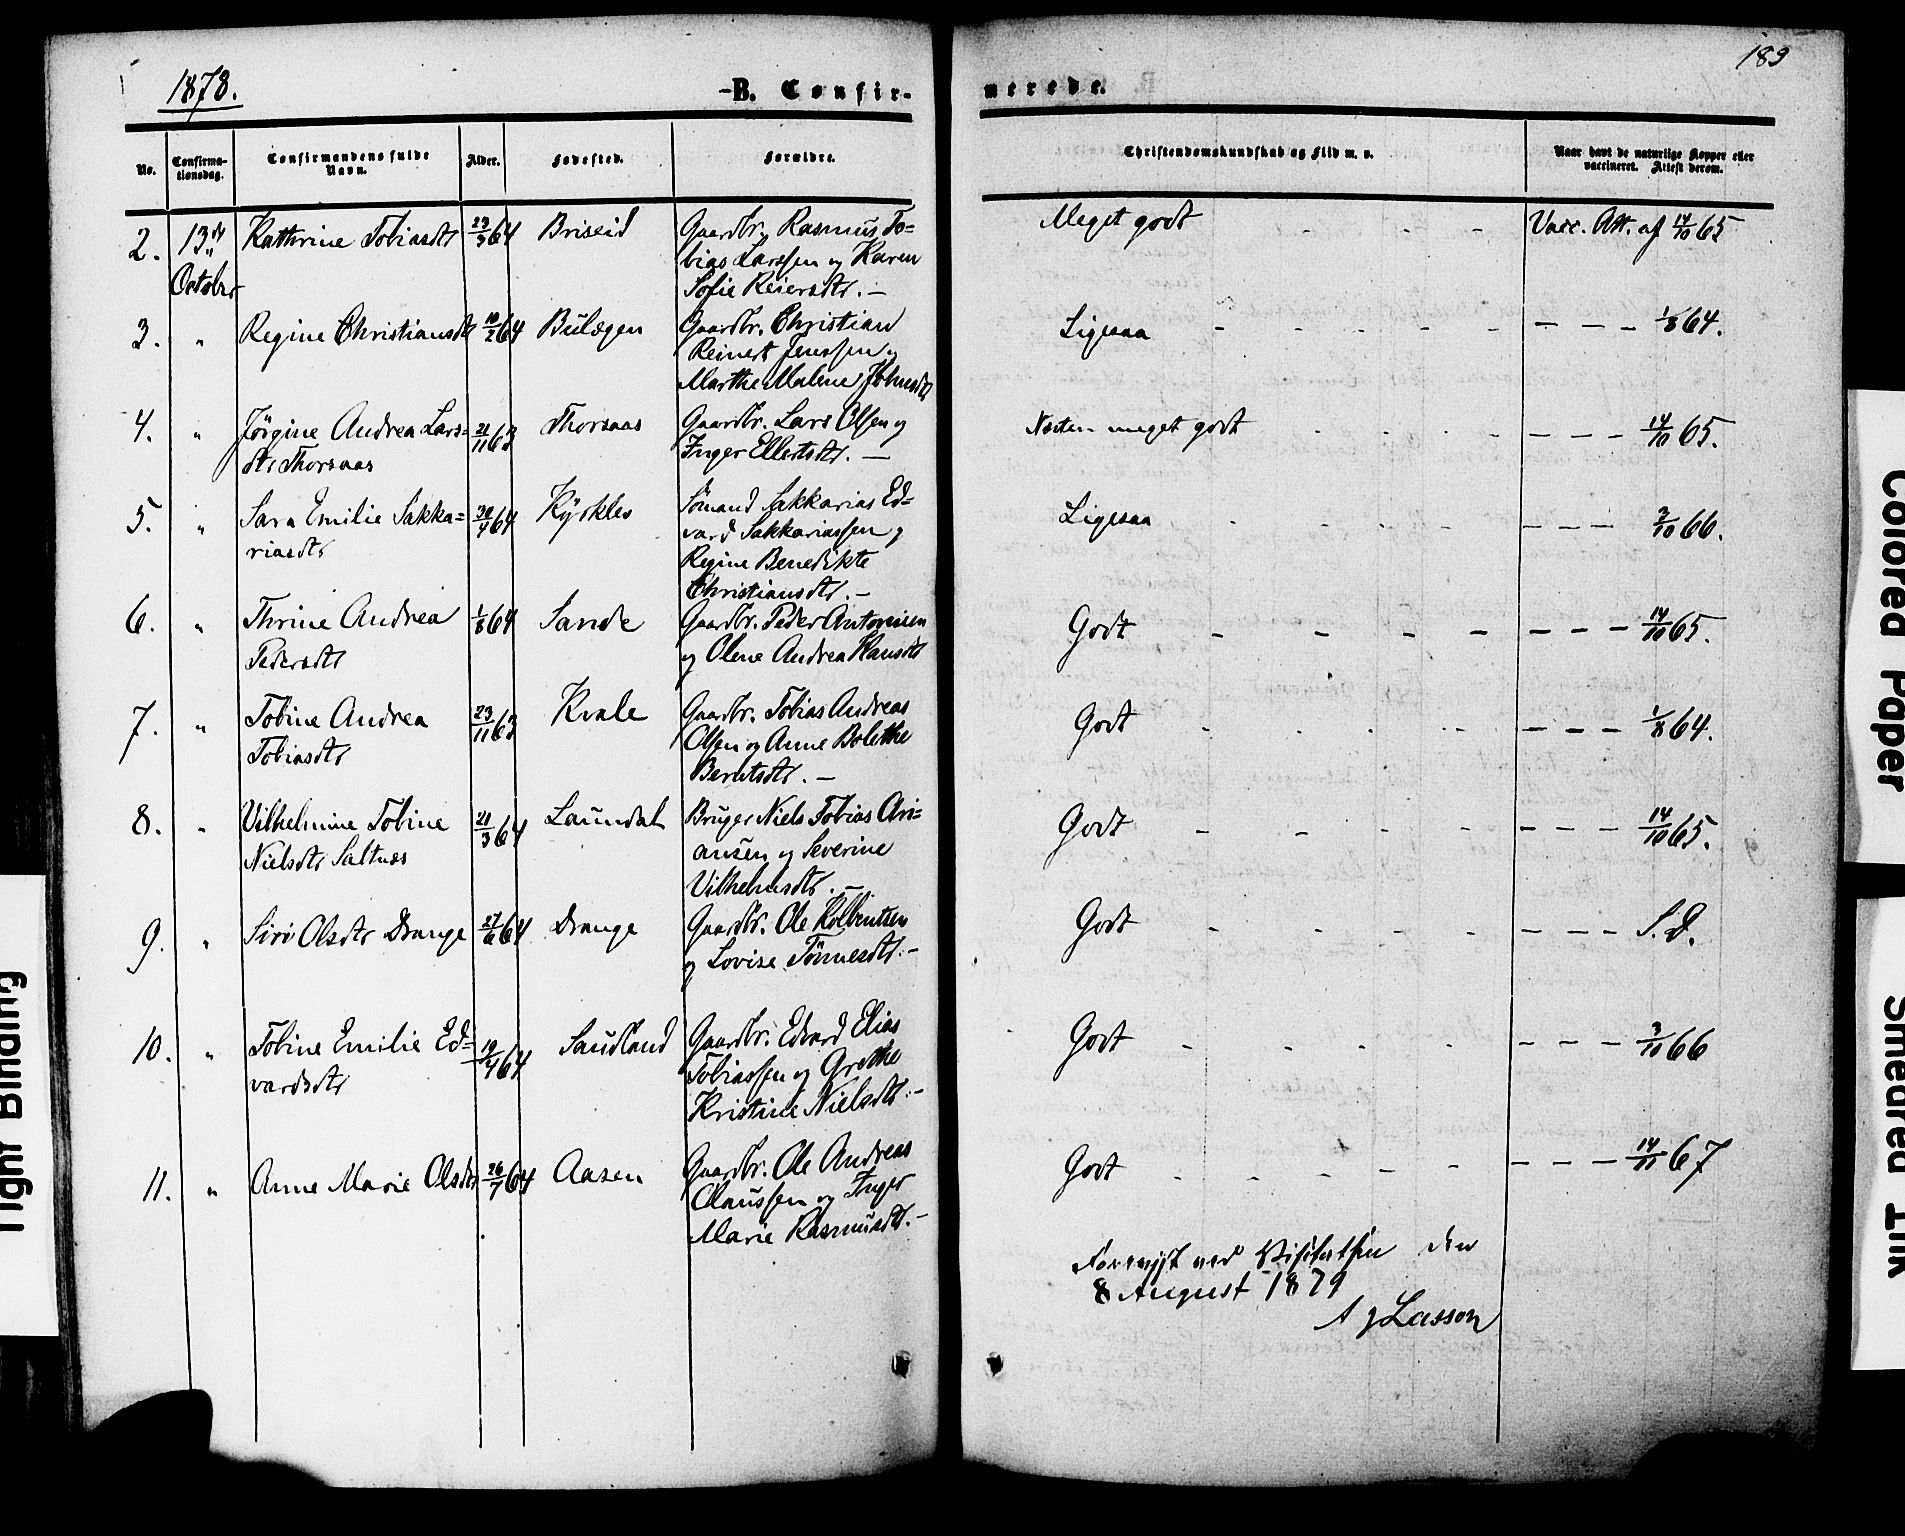 183
1878.
B. Confirmerede.
No.
Confirma-
tionsdag.
Confirmandens fulde
Navn.
Alder.
Fødested.
Forældre.
Christendomskundskab og Flid m. v.
Naar havt de naturlige Kopper eller
vaccineret. Attest derom.
2. 13de October Kathrine Tobiasdtr 23/3 64 Briseid Gaardbr. Rasmus To-
bias Larssen og Karen
Sofie Reiersdtr. — Meget godt - - - Vacc. Att. af 14/10 65
3. " Regine Christiansdtr 10/2 64 Bulægen Gaardbr. Christian
Reinert Jenssen og
Marthe Malene Johnsdtr Ligesaa - - - 1/8 64.
4. " Jørgine Andrea Lars-
dtr Thorsaas 21/11 63 Thorsaas Gaardbr. Lars Olsen og
Inger Ellertsdtr. — Næsten meget godt - - - 14/10 65.
5. " Sara Emilie Sakka-
riasdtr 30/4 64 Gaardbr. Sømand Sakkarias Ed-
vard Sakkariassen og
Regine Benedikte
Christiansdtr. — Ligesaa - - - 3/10 66.
6. " Thrine Andrea
Pedersdtr 1/8 64 Sande Gaardbr. Peder Antonisen
og Olene Andrea Hansdtr Godt - - - 14/10 65.
7. " Tobine Andrea
Tobiasdtr 23/11 63 Kvale Gaardbr. Tobias Andreas
Olsen og Anne Bolethe
Berntsdtr. — Godt - - - 1/8 64.
8. " Vilhelmine Tobine
Nielsdtr Saltnæs 21/3 64 Laundal Bruger Niels Tobias Ari-
ansen og Severine
Vilhelmsdtr. — Godt - - - 14/10 65.
9. " Siri Olsdtr Drange 27/6 64 Drange Gaardbr. Ole Kolbentsen
og Lovise Tønnesdtr. — Godt - - - S. D.
10. " Tobine Emilie Ed-
vardsdtr 19/4 64 Saudland Gaardbr. Edvard Elias
Tobiassen og Grethe
Kristine Nielsdtr. — Godt - - - 3/10 66
11. " Anne Marie Olsdtr 26/7 64 Aasen Gaardbr. Ole Andreas
Claussen og Inger
Marie Rasmusdtr. — Godt - - - 14/11 67
Forevist ved Visitatsen den
8 August 1879
A J Lasson
Colored Paper
Smeared Ink
Tight Binding